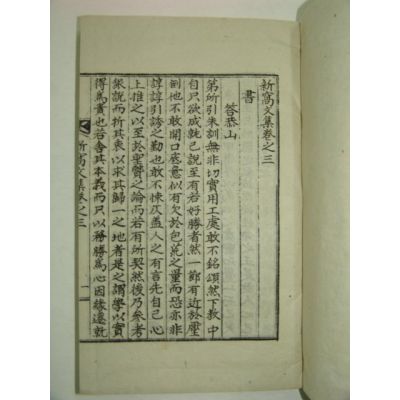 新窩文集卷之三
書
答㳟山
第所引朱訓無非切實用工處敢不銘頌然下教中
自只欲成就己說至有若好勝者然一節有近於壓
倒他不敢開口底意似有欠於包荒之量而恐亦非
諄諄引誘之勤也敢不悚仄盖人之有言先自己心
上推之以至於聖賢之論而若有所契然後乃參考
衆說而析其衷以求其歸一之地者是之謂學以實
得爲貴也若舍其本義而只以務勝爲心因緣遷就
新窩文集卷之三
一